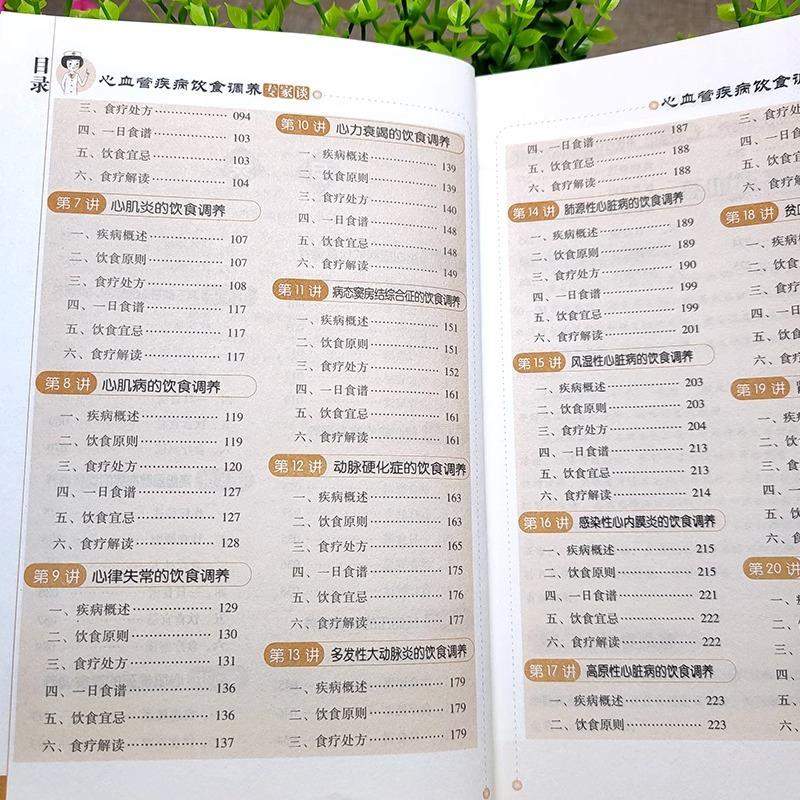 目录
心血管疾病饮食调养专家谈
三、食疗处方 094
四、一日食谱 103
五、饮食宜忌 103
六、食疗解读 104
第7讲 心肌炎的饮食调养
一、疾病概述 107
二、饮食原则 107
三、食疗处方 108
四、一日食谱 117
五、饮食宜忌 117
六、食疗解读 117
第8讲 心肌病的饮食调养
一、疾病概述 119
二、饮食原则 119
三、食疗处方 120
四、一日食谱 127
五、饮食宜忌 127
六、食疗解读 128
第9讲 心律失常的饮食调养
一、疾病概述 129
二、饮食原则 130
三、食疗处方 131
四、一日食谱 136
五、饮食宜忌 136
六、食疗解读 137
第10讲 心力衰竭的饮食调养
一、疾病概述 139
二、饮食原则 139
三、食疗处方 140
四、一日食谱 148
五、饮食宜忌 148
六、食疗解读 149
第11讲 病态窦房结综合征的饮食调养
一、疾病概述 151
二、饮食原则 151
三、食疗处方 152
四、一日食谱 161
五、饮食宜忌 161
六、食疗解读 161
第12讲 动脉硬化症的饮食调养
一、疾病概述 163
二、饮食原则 163
三、食疗处方 165
四、一日食谱 175
五、饮食宜忌 176
六、食疗解读 177
第13讲 多发性大动脉炎的饮食调养
一、疾病概述 179
二、饮食原则 179
三、食疗处方 179
心血管疾病饮食调
四、一日食谱 187
五、饮食宜忌 188
六、食疗解读 188
第14讲 肺源性心脏病的饮食调养
一、疾病概述 189
二、饮食原则 189
三、食疗处方 190
四、一日食谱 199
五、饮食宜忌 199
六、食疗解读 201
第15讲 风湿性心脏病的饮食调养
一、疾病概述 203
二、饮食原则 203
三、食疗处方 204
四、一日食谱 213
五、饮食宜忌 213
六、食疗解读 214
第16讲 感染性心内膜炎的饮食调养
一、疾病概述 215
二、饮食原则 215
三、食疗处方 216
四、一日食谱 221
五、饮食宜忌 222
六、食疗解读 222
第17讲 高原性心脏病的饮食调养
一、疾病概述 223
二、饮食原则 223
四、一日
五、饮食
六、食疗
第18讲 贫
一、疾病
二、饮食
三、食疗
四、一日
五、饮食
六、食疗
第19讲
一、疾
二、饮
三、食
四、一
五、饮
六、食
第20讲
一、
二、
三、
四、
五、